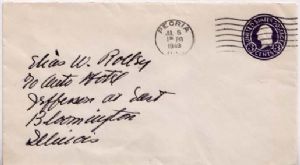 PEORIA
JUL 6
1 PM
1943
ILL.
UNITED STATES POSTAGE
3 CENTS 3
Elias W. Rolley
% Auto Hotel
Jefferson at East
Bloomington
Illinois